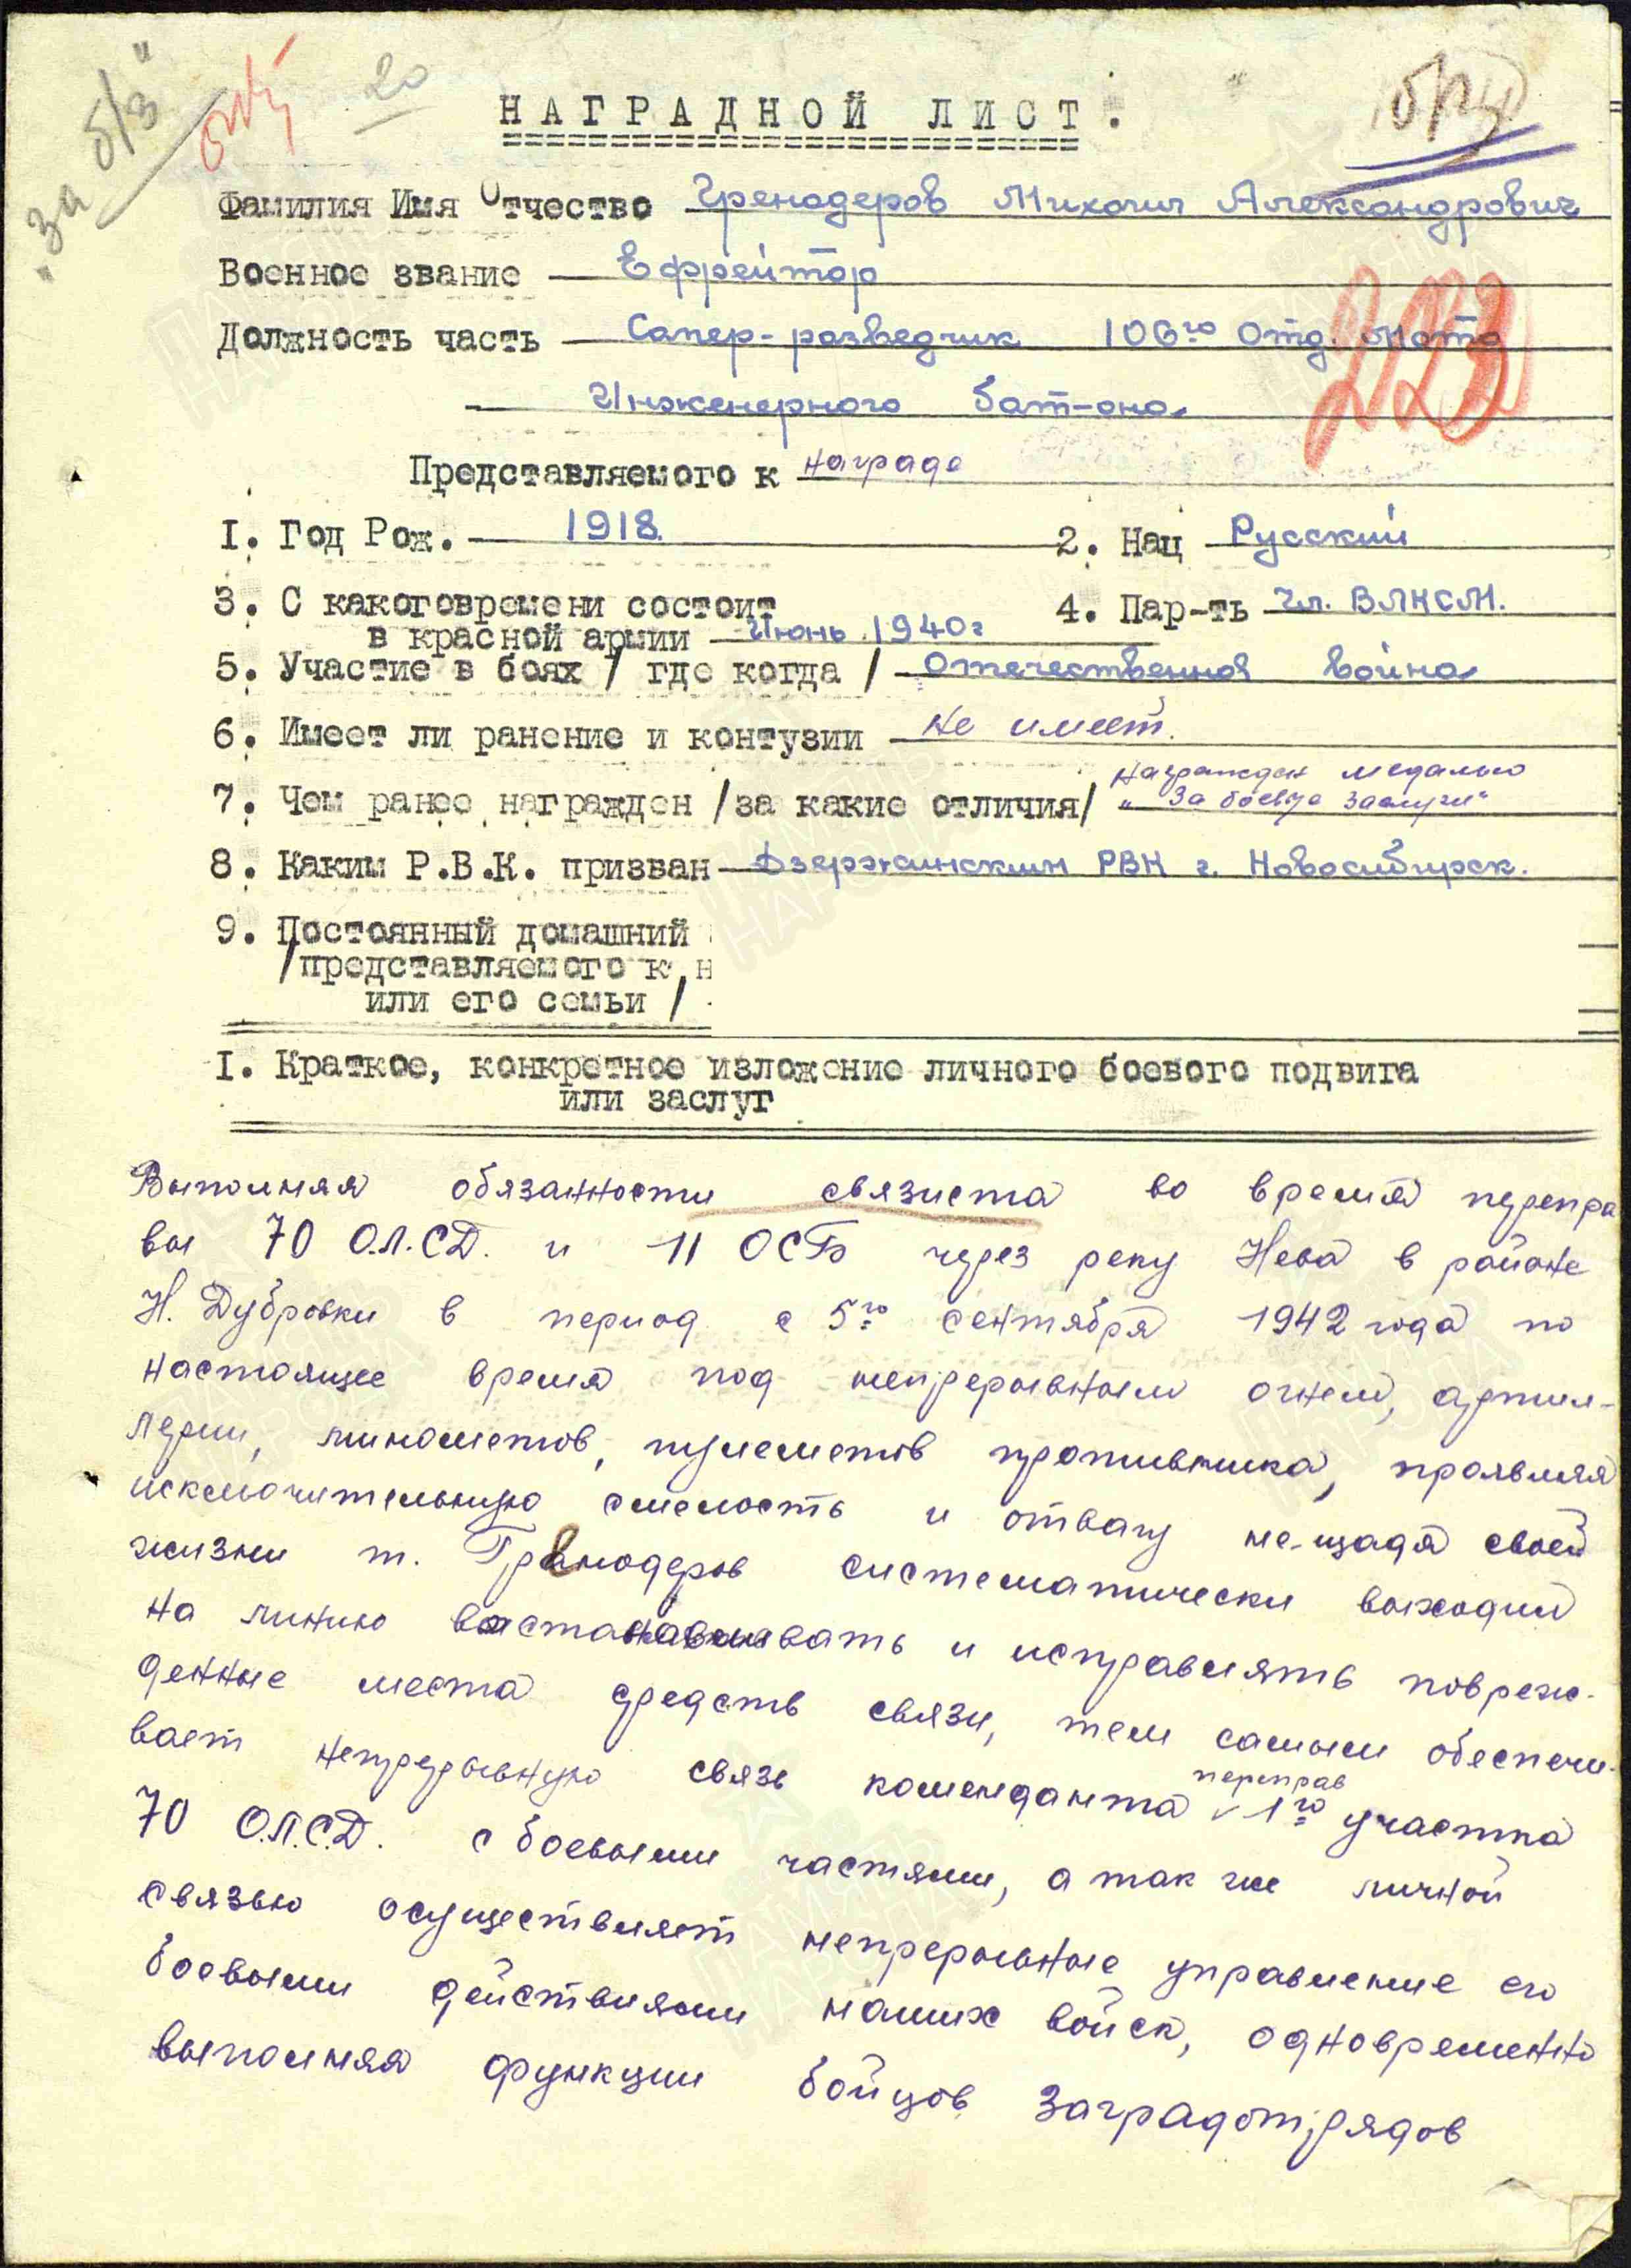 "За б/з"
20
НАГРАДНОЙ ЛИСТ.
Фамилия Имя Отчество Гренадеров Михаил Александрович
Военное звание — Ефрейтор
Должность часть — Сапер-разведчик 106го Отд. Мото
Инженерного бат-она
223
Представляемого к награде
I. Год Рож. — 1918. 2. Нац Русский
3. С какоговремени состоит 4. Пар-ть Чл. ВЛКСМ.
в красной армии — Июнь 1940г
5. Участие в боях / где когда / — Отечественная война
6. Имеет ли ранение и контузии — Не имеет.
7. Чем ранее награжден /за какие отличия/ Награжден медалью
"За боевые заслуги"
8. Каким Р.В.К. призван — Дзержинским РВК г. Новосибирск.
9. Постоянный домашний
/представляемого к н
или его семьи /
I. Краткое, конкретное изложение личного боевого подвига
или заслуг
Выполняя обязанности связиста во время перепра
вы 70 О.Л.СД. и 11 ОСБ через реку Нева в районе
Н. Дубровки в период с 5го сентября 1942 года по
настоящее время под непрерывным огнем, артил-
лерии, минометов, пулеметов противника, проявляя
исключительную смелость и отвагу не-щадя своей
жизни т. Гренодеров систематически выходил
на линию востанавливать и исправлять повреж-
денные места средств связи, тем самым обеспечи-
вает непрерывную связь коменданта переправ 1го участка
70 О.Л.С.Д. с боевыми частями, а так же личной
связью осуществляет непрерывные управление его
боевыми действиями наших войск, одновременно
выполняя функции бойцов Заградотрядов